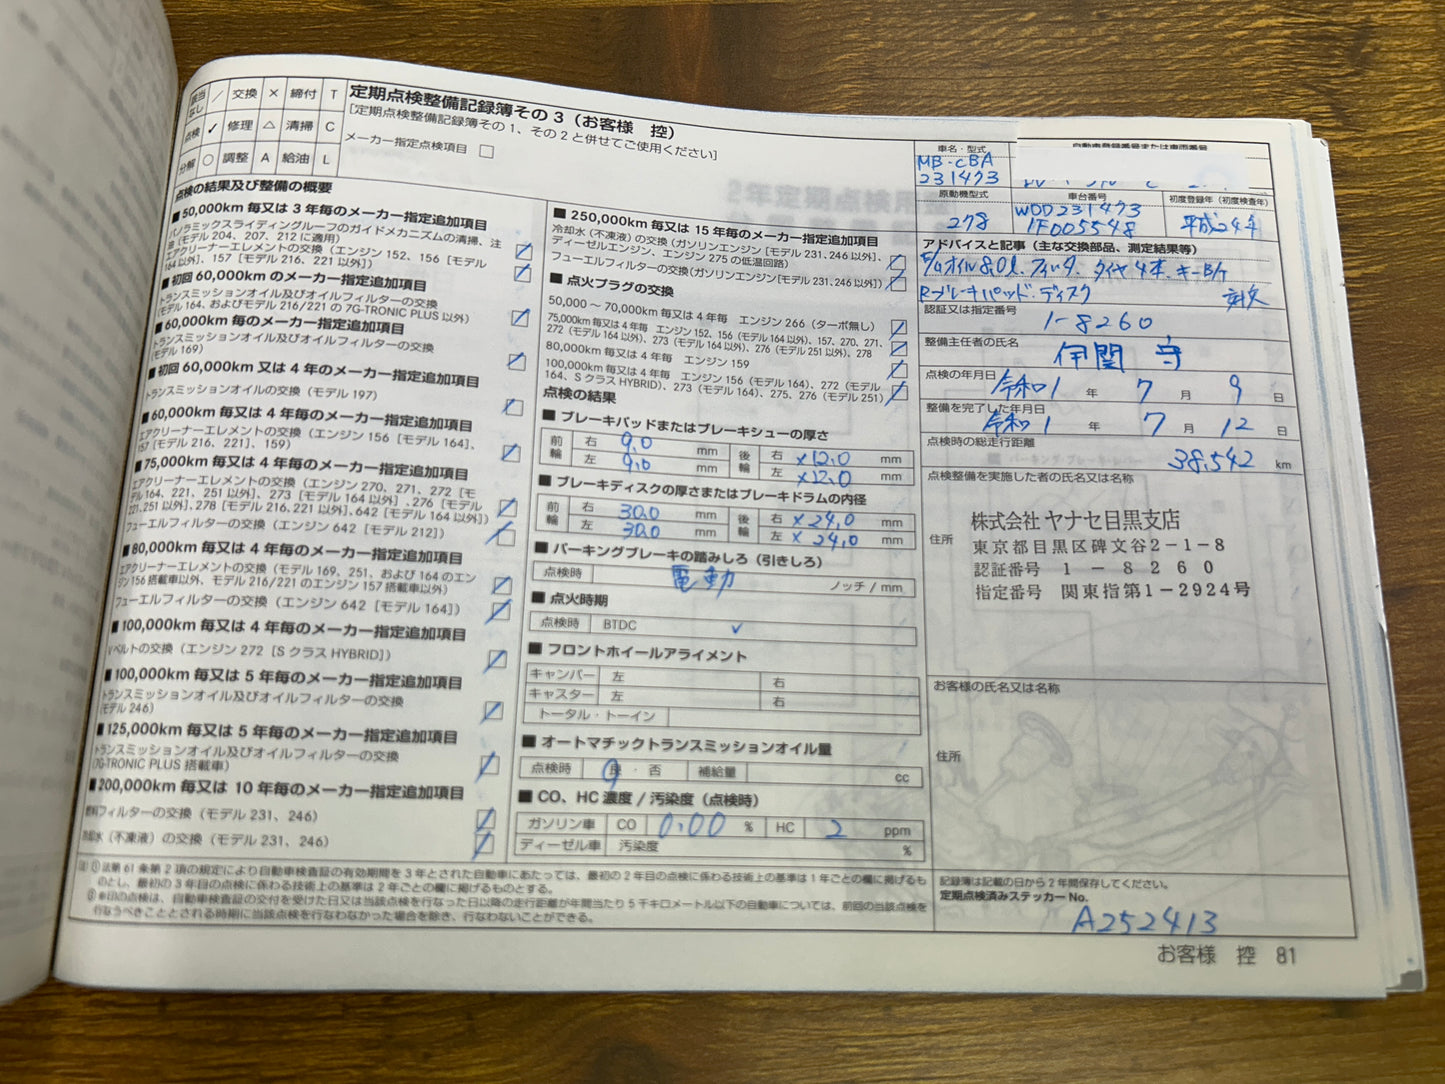 該当なし ／ 交換 × 締付 T
点検 ✓ 修理 △ 清掃 C
分解 ○ 調整 A 給油 L
定期点検整備記録簿その3（お客様　控）
［定期点検整備記録簿その1、その2と併せてご使用ください］
メーカー指定点検項目 □
点検の結果及び整備の概要
■ 50,000km 毎又は3年毎のメーカー指定追加項目
パノラミックスライディングルーフのガイドメカニズムの清掃、注
油（モデル204、207、212に適用）
エアクリーナーエレメントの交換（エンジン152、156［モデル
164以外］、157［モデル216、221以外］）
■ 初回60,000kmのメーカー指定追加項目
トランスミッションオイル及びオイルフィルターの交換
（モデル164、およびモデル216/221の7G-TRONIC PLUS以外）
■ 60,000km 毎のメーカー指定追加項目
トランスミッションオイル及びオイルフィルターの交換
（モデル169）
■ 初回60,000km又は4年毎のメーカー指定追加項目
トランスミッションオイルの交換（モデル197）
■ 60,000km 毎又は4年毎のメーカー指定追加項目
エアクリーナーエレメントの交換（エンジン156［モデル164］、
157［モデル216、221］、159）
■ 75,000km 毎又は4年毎のメーカー指定追加項目
エアクリーナーエレメントの交換（エンジン270、271、272［モ
デル164、221、251以外］、273［モデル164以外］、276［モデル
221,251以外］、278［モデル216、221以外］、642［モデル164以外］）
フューエルフィルターの交換（エンジン642［モデル212］）
■ 80,000km 毎又は4年毎のメーカー指定追加項目
エアクリーナーエレメントの交換（モデル169、251、および164のエン
ジン156搭載車以外、モデル216/221のエンジン157搭載車以外）
フューエルフィルターの交換（エンジン642［モデル164］）
■ 100,000km 毎又は4年毎のメーカー指定追加項目
Vベルトの交換（エンジン272［SクラスHYBRID］）
■ 100,000km 毎又は5年毎のメーカー指定追加項目
トランスミッションオイル及びオイルフィルターの交換
（モデル246）
■ 125,000km 毎又は5年毎のメーカー指定追加項目
トランスミッションオイル及びオイルフィルターの交換
（7G-TRONIC PLUS搭載車）
■ 200,000km 毎又は10年毎のメーカー指定追加項目
燃料フィルターの交換（モデル231、246）
冷却水（不凍液）の交換（モデル231、246）
■ 250,000km 毎又は15年毎のメーカー指定追加項目
冷却水（不凍液）の交換（ガソリンエンジン［モデル231,246以外］、
ディーゼルエンジン、エンジン275の低温回路）
フューエルフィルターの交換（ガソリンエンジン［モデル231、246以外］）
■ 点火プラグの交換
50,000～70,000km又は4年毎　エンジン266（ターボ無し）
75,000km毎又は4年毎　エンジン152、156（モデル164以外）、157、270、271、
272（モデル164以外）、273（モデル164以外）、276（モデル251以外）、278
80,000km 毎又は4年毎　エンジン159
100,000km 毎又は4年毎　エンジン156（モデル164）、272（モデル
164、SクラスHYBRID）、273（モデル164）、275、276（モデル251）
点検の結果
■ ブレーキパッドまたはブレーキシューの厚さ
前輪 右 9.0 mm 後輪 右 ×12.0 mm
左 9.0 mm 左 ×12.0 mm
■ ブレーキディスクの厚さまたはブレーキドラムの内径
前輪 右 30.0 mm 後輪 右 ×24.0 mm
左 30.0 mm 左 ×24.0 mm
■ パーキングブレーキの踏みしろ（引きしろ）
点検時 電動 ノッチ / mm
■ 点火時期
点検時 BTDC ✓
■ フロントホイールアライメント
キャンバー 左 右
キャスター 左 右
トータル・トーイン
■ オートマチックトランスミッションオイル量
点検時 良・否 補給量 cc
■ CO、HC濃度 / 汚染度（点検時）
ガソリン車 CO 0.00 % HC 2 ppm
ディーゼル車 汚染度 %
車名・型式
MB・CBA
231473
自動車登録番号または車両番号
原動機型式
278
車台番号
WDD231473
1F005548
初度登録年（初度検査年）
平成24年
アドバイスと記事（主な交換部品、測定結果等）
E/Gオイル8.0ℓ．フィルタ．タイヤ4本．キーB/T
Rブレーキパッド・ディスク
認証又は指定番号
1-8260
整備主任者の氏名
伊関 守
点検の年月日
令和1 年 7 月 9 日
整備を完了した年月日
令和1 年 7 月 12 日
点検時の総走行距離
38,542 km
点検整備を実施した者の氏名又は名称
株式会社 ヤナセ目黒支店
住所 東京都目黒区碑文谷2－1－8
認証番号　1－8260
指定番号　関東指第1－2924号
お客様の氏名又は名称
住所
記録簿は記載の日から2年間保存してください。
定期点検済みステッカーNo.
A252413
（注）① 法第61条第2項の規定により自動車検査証の有効期間を3年とされた自動車にあたっては、最初の2年目の点検に係わる技術上の基準は1年ごとの欄に掲げるも
のとし、最初の3年目の点検に係わる技術上の基準は2年ごとの欄に掲げるものとする。
② ※印の点検は、自動車検査証の交付を受けた日又は当該点検を行なった日以降の走行距離が年間当たり5千キロメートル以下の自動車については、前回の当該点検を
行なうべきこととされる時期に当該点検を行なわなかった場合を除き、行なわないことができる。
お客様　控　81